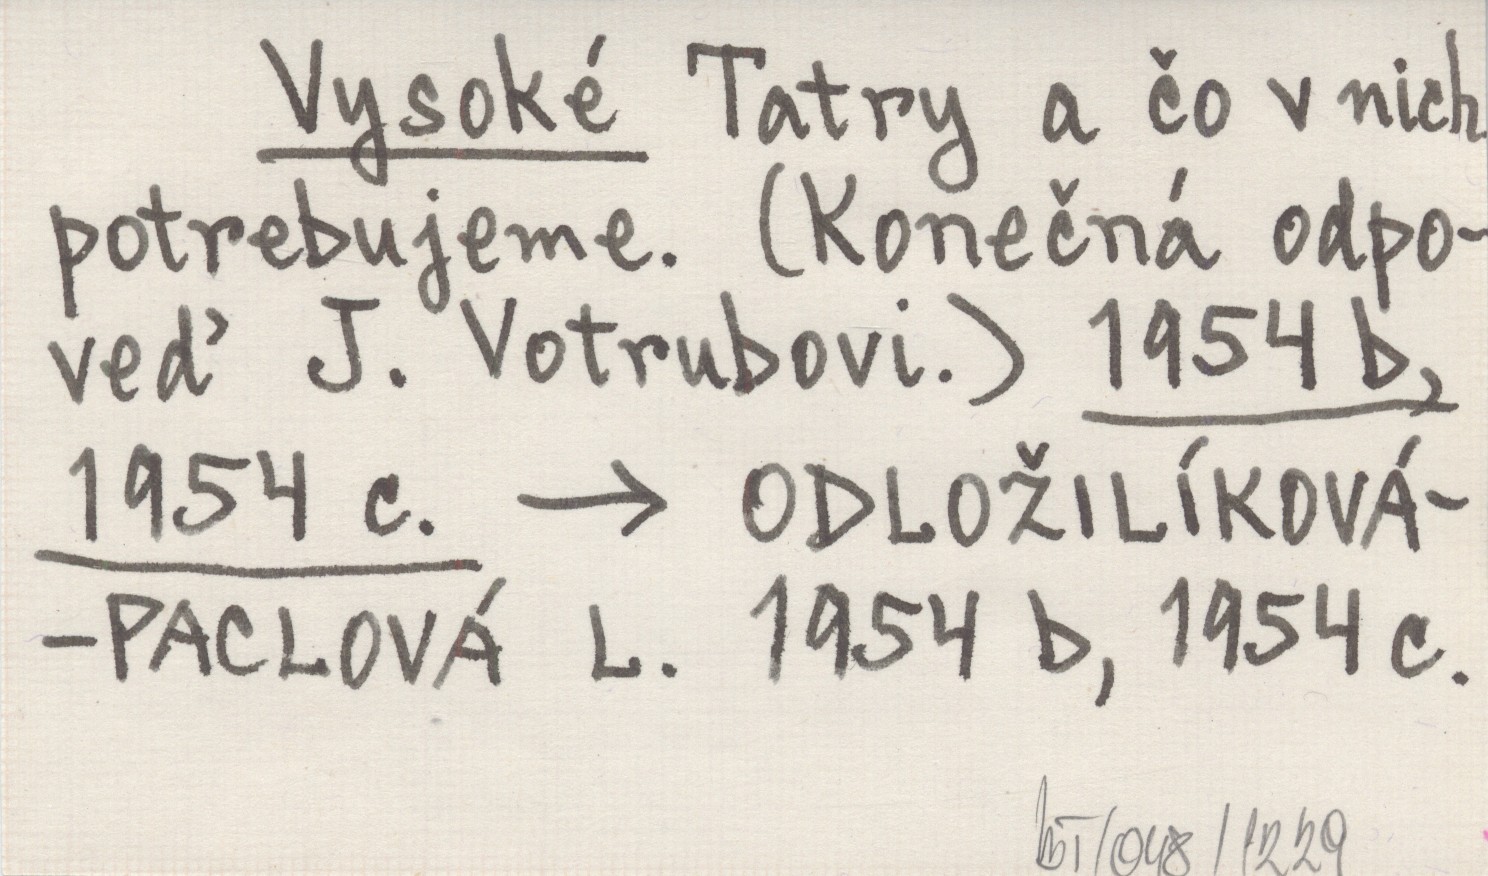 Vysoké Tatry a čo v nich
potrebujeme. (Konečná odpo-
veď J. Votrubovi.) 1954 b,
1954 c. → ODLOŽILÍKOVÁ-
-PACLOVÁ L. 1954 b, 1954 c.
/048/1229